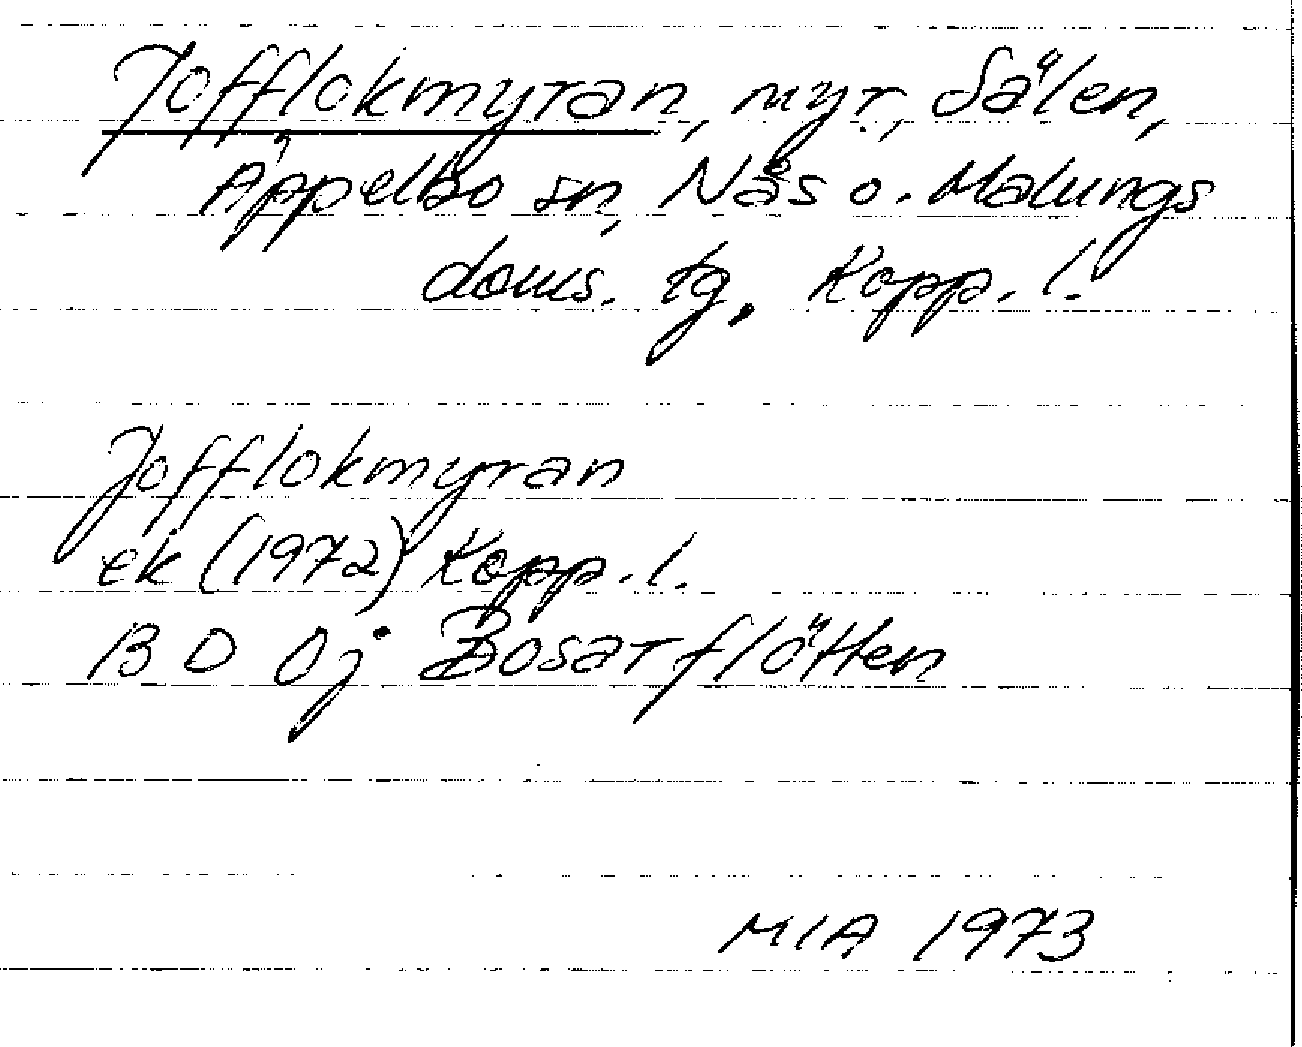 Jofflokmyran, myr, Sälen,
Äppelbo sn, Nås o. Malungs
doms. tg, Kopp. l.
Jofflokmyran
ek (1972) Kopp. l.
13 D 0j Bosarflötten
MIA 1973